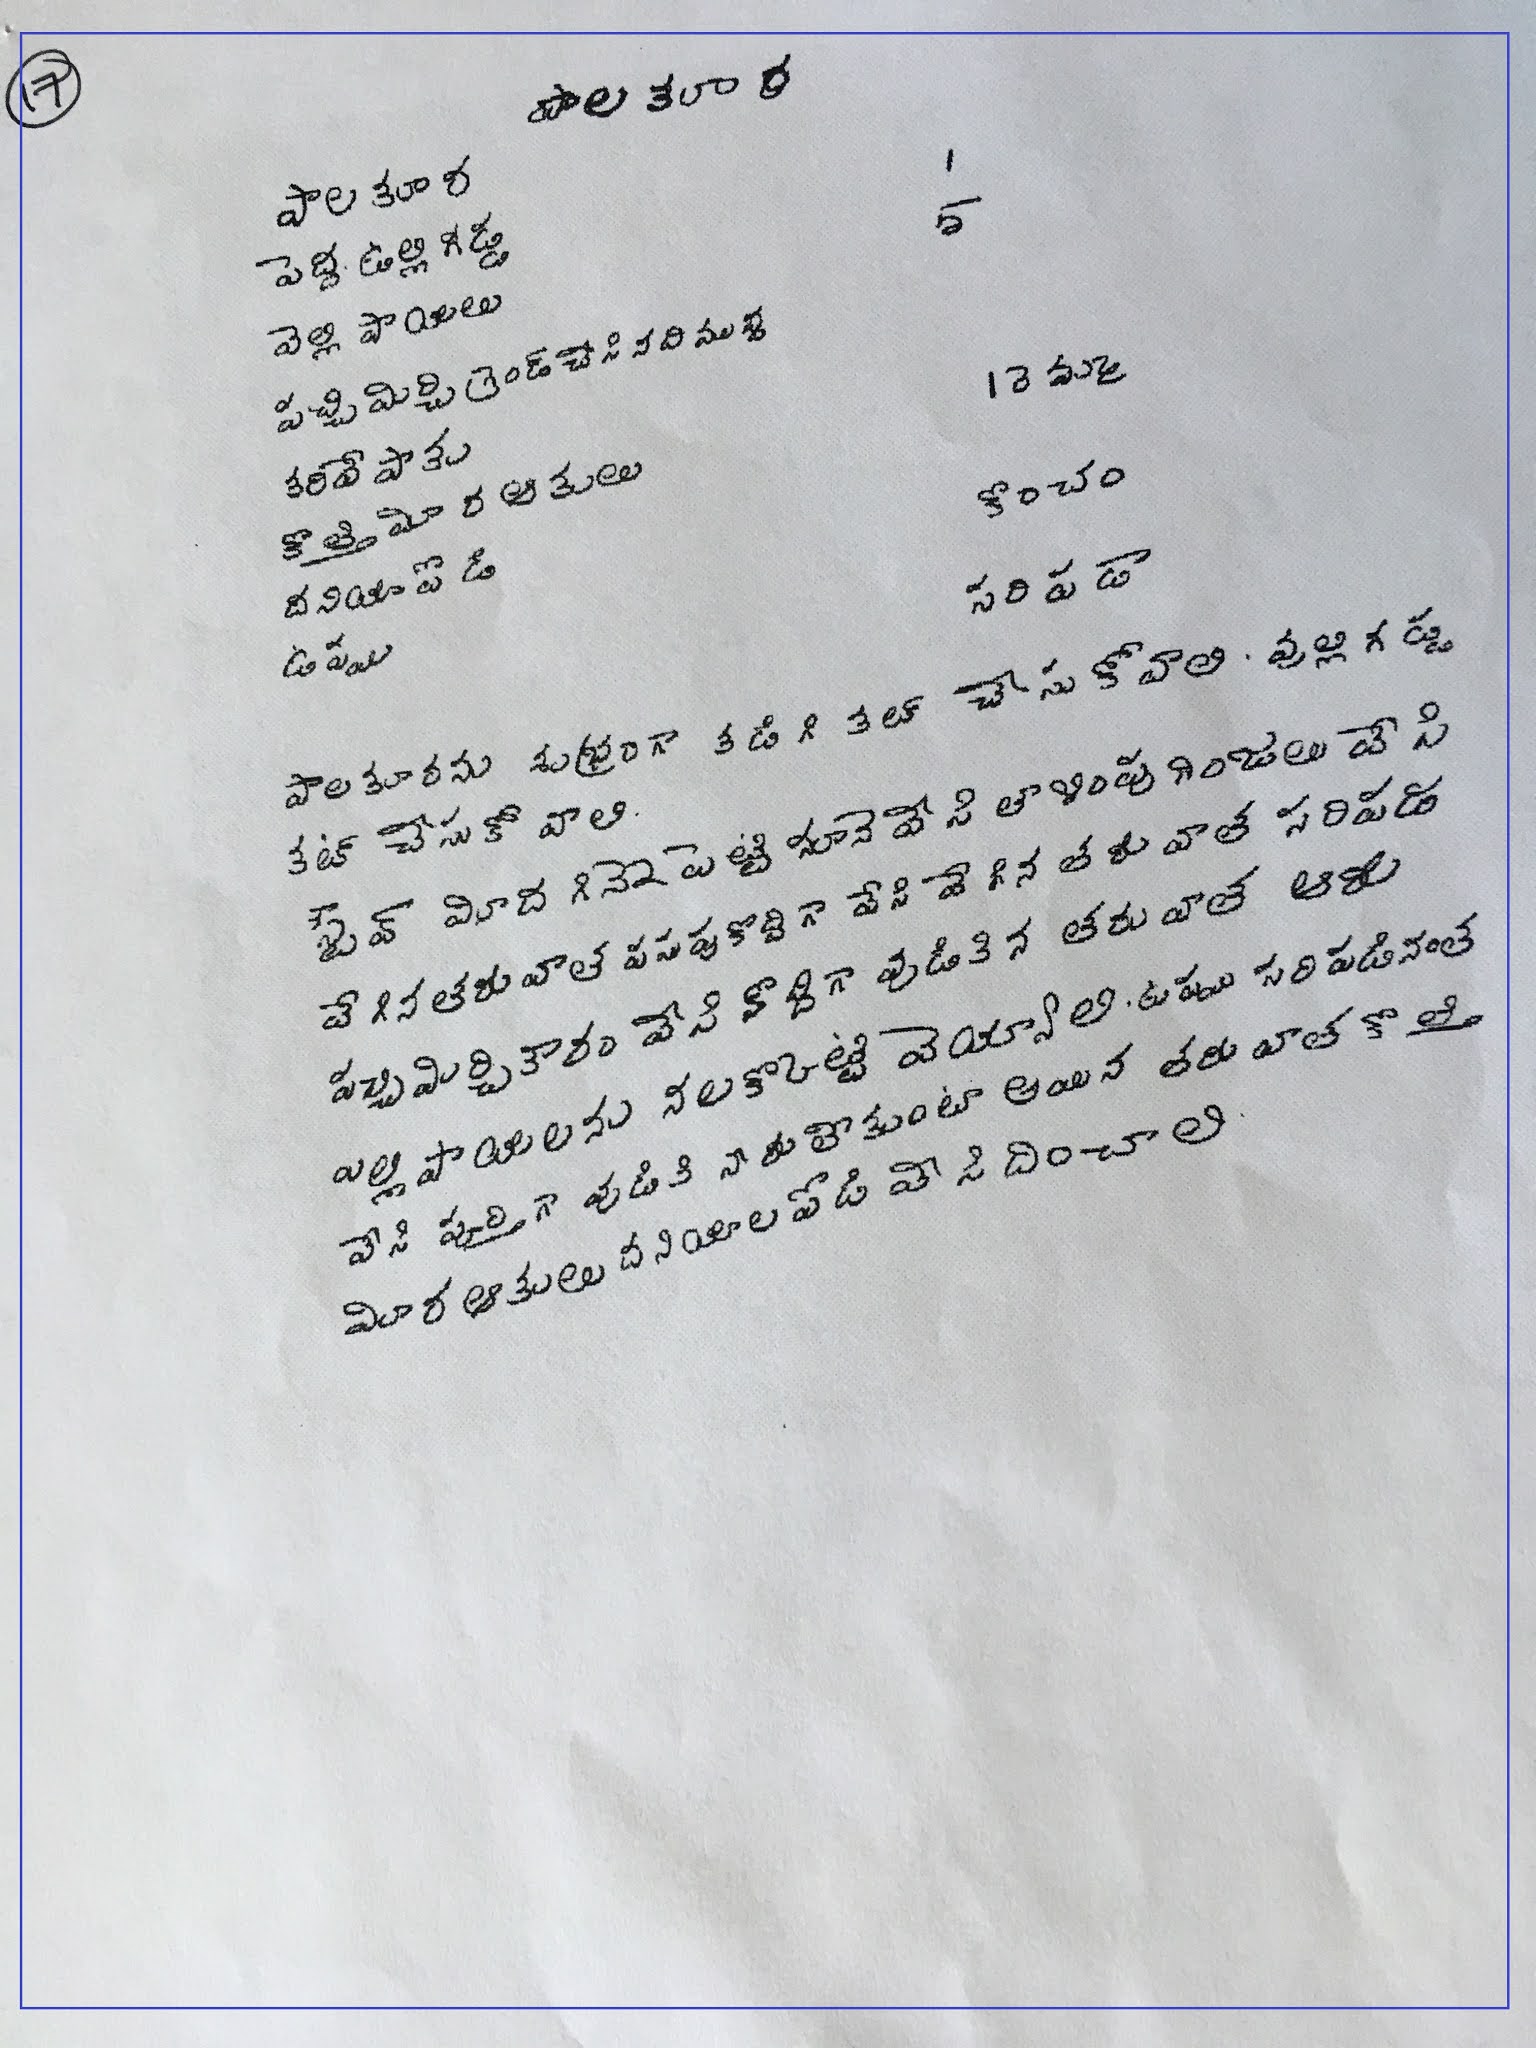 17
పాలకూర
పాలకూర
పెద్ద ఉల్లిగడ్డ 1
వెల్లిపాయిలు 5
పచ్చిమిర్చి గ్రెండ్ చేసినది ముద్ద
కరివేపాకు 1 రెమ్మ
కొత్తిమీర ఆకులు
దనియాపొడి కొంచం
ఉప్పు సరిపడా
పాలకూరను శుభ్రంగా కడిగి కట్ చేసుకోవాలి. వుల్లిగడ్డ
కట్ చేసుకోవాలి.
స్టౌవ్ మీద గిన్నె పెట్టి నూనె వేసి తాళింపు గింజలు వేసి
వేగిన తరువాత పసుపు కొద్దిగా వేసి వేగిన తరువాత సరిపడా
పచ్చిమిర్చి కారం వేసి కొద్దిగా వుడికిన తరువాత ఆరు
ఎల్లిపాయిలను నలకొట్టి వెయ్యాలి. ఉప్పు సరిపడినంత
వేసి పూర్తిగా వుడికి నీరు లేకుంటా అయిన తరువాత కొత్తి
మీర ఆకులు దనియాల పొడి వేసి దించాలి.